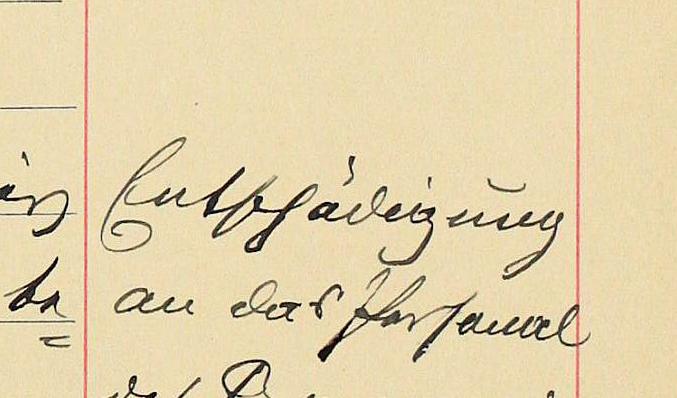 Entschädigung
an das Personal